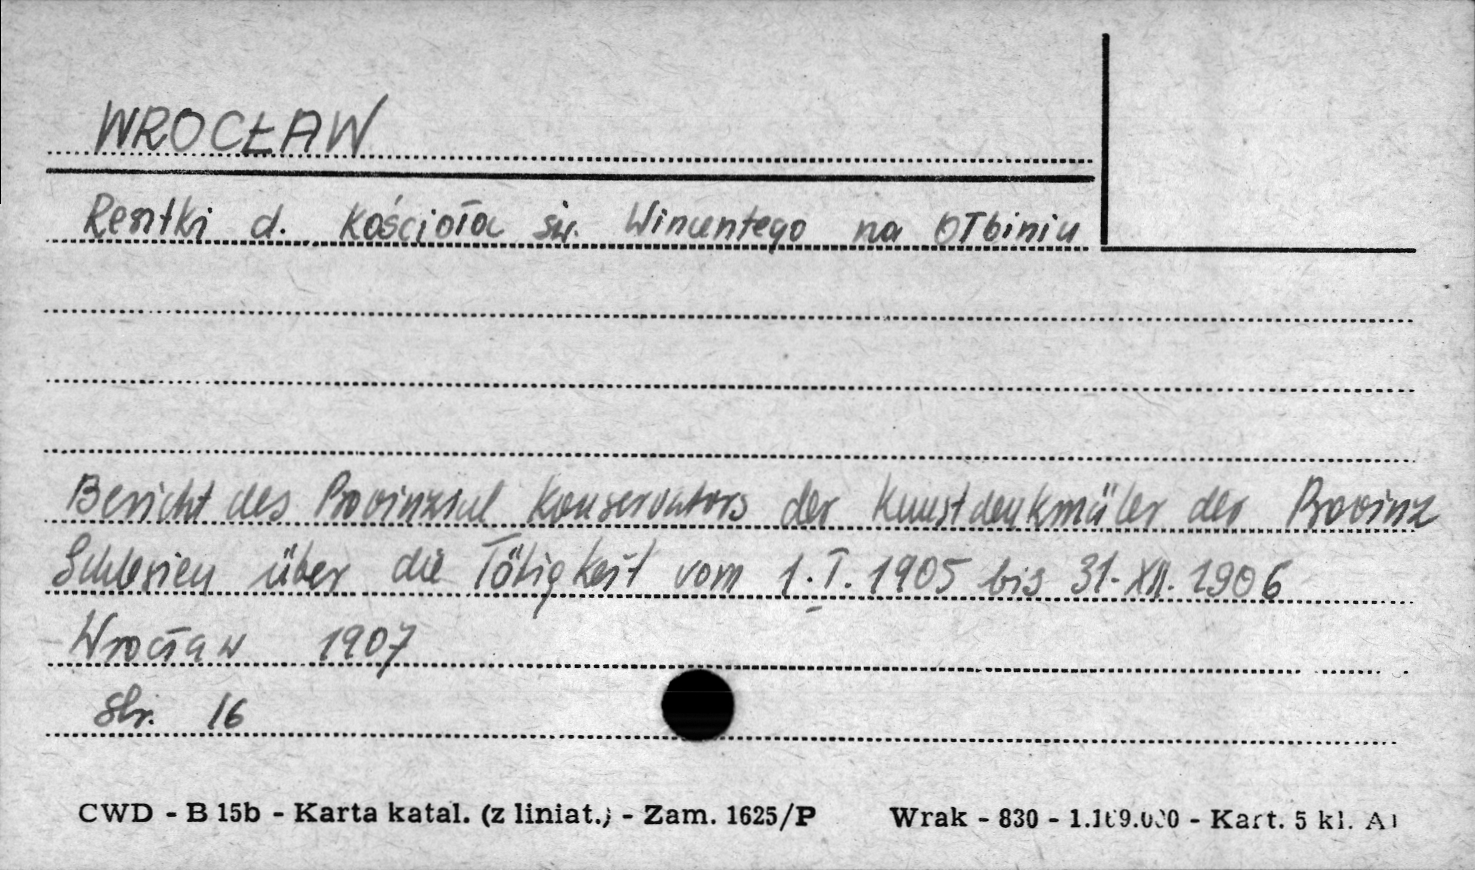 WROCŁAW
Resztki d. Kościoła św. Wincentego na Ołbiniu
Bericht des Provinzial Konservators der Kunstdenkmäler der Provinz
Schlesien über die Tätigkeit vom 1.I.1905 bis 31.XII.1906
Wrocław 1907
Str. 16
CWD - B 15b - Karta katal. (z liniat.) - Zam. 1625/P Wrak - 830 - - Kart. 5 kl. A1